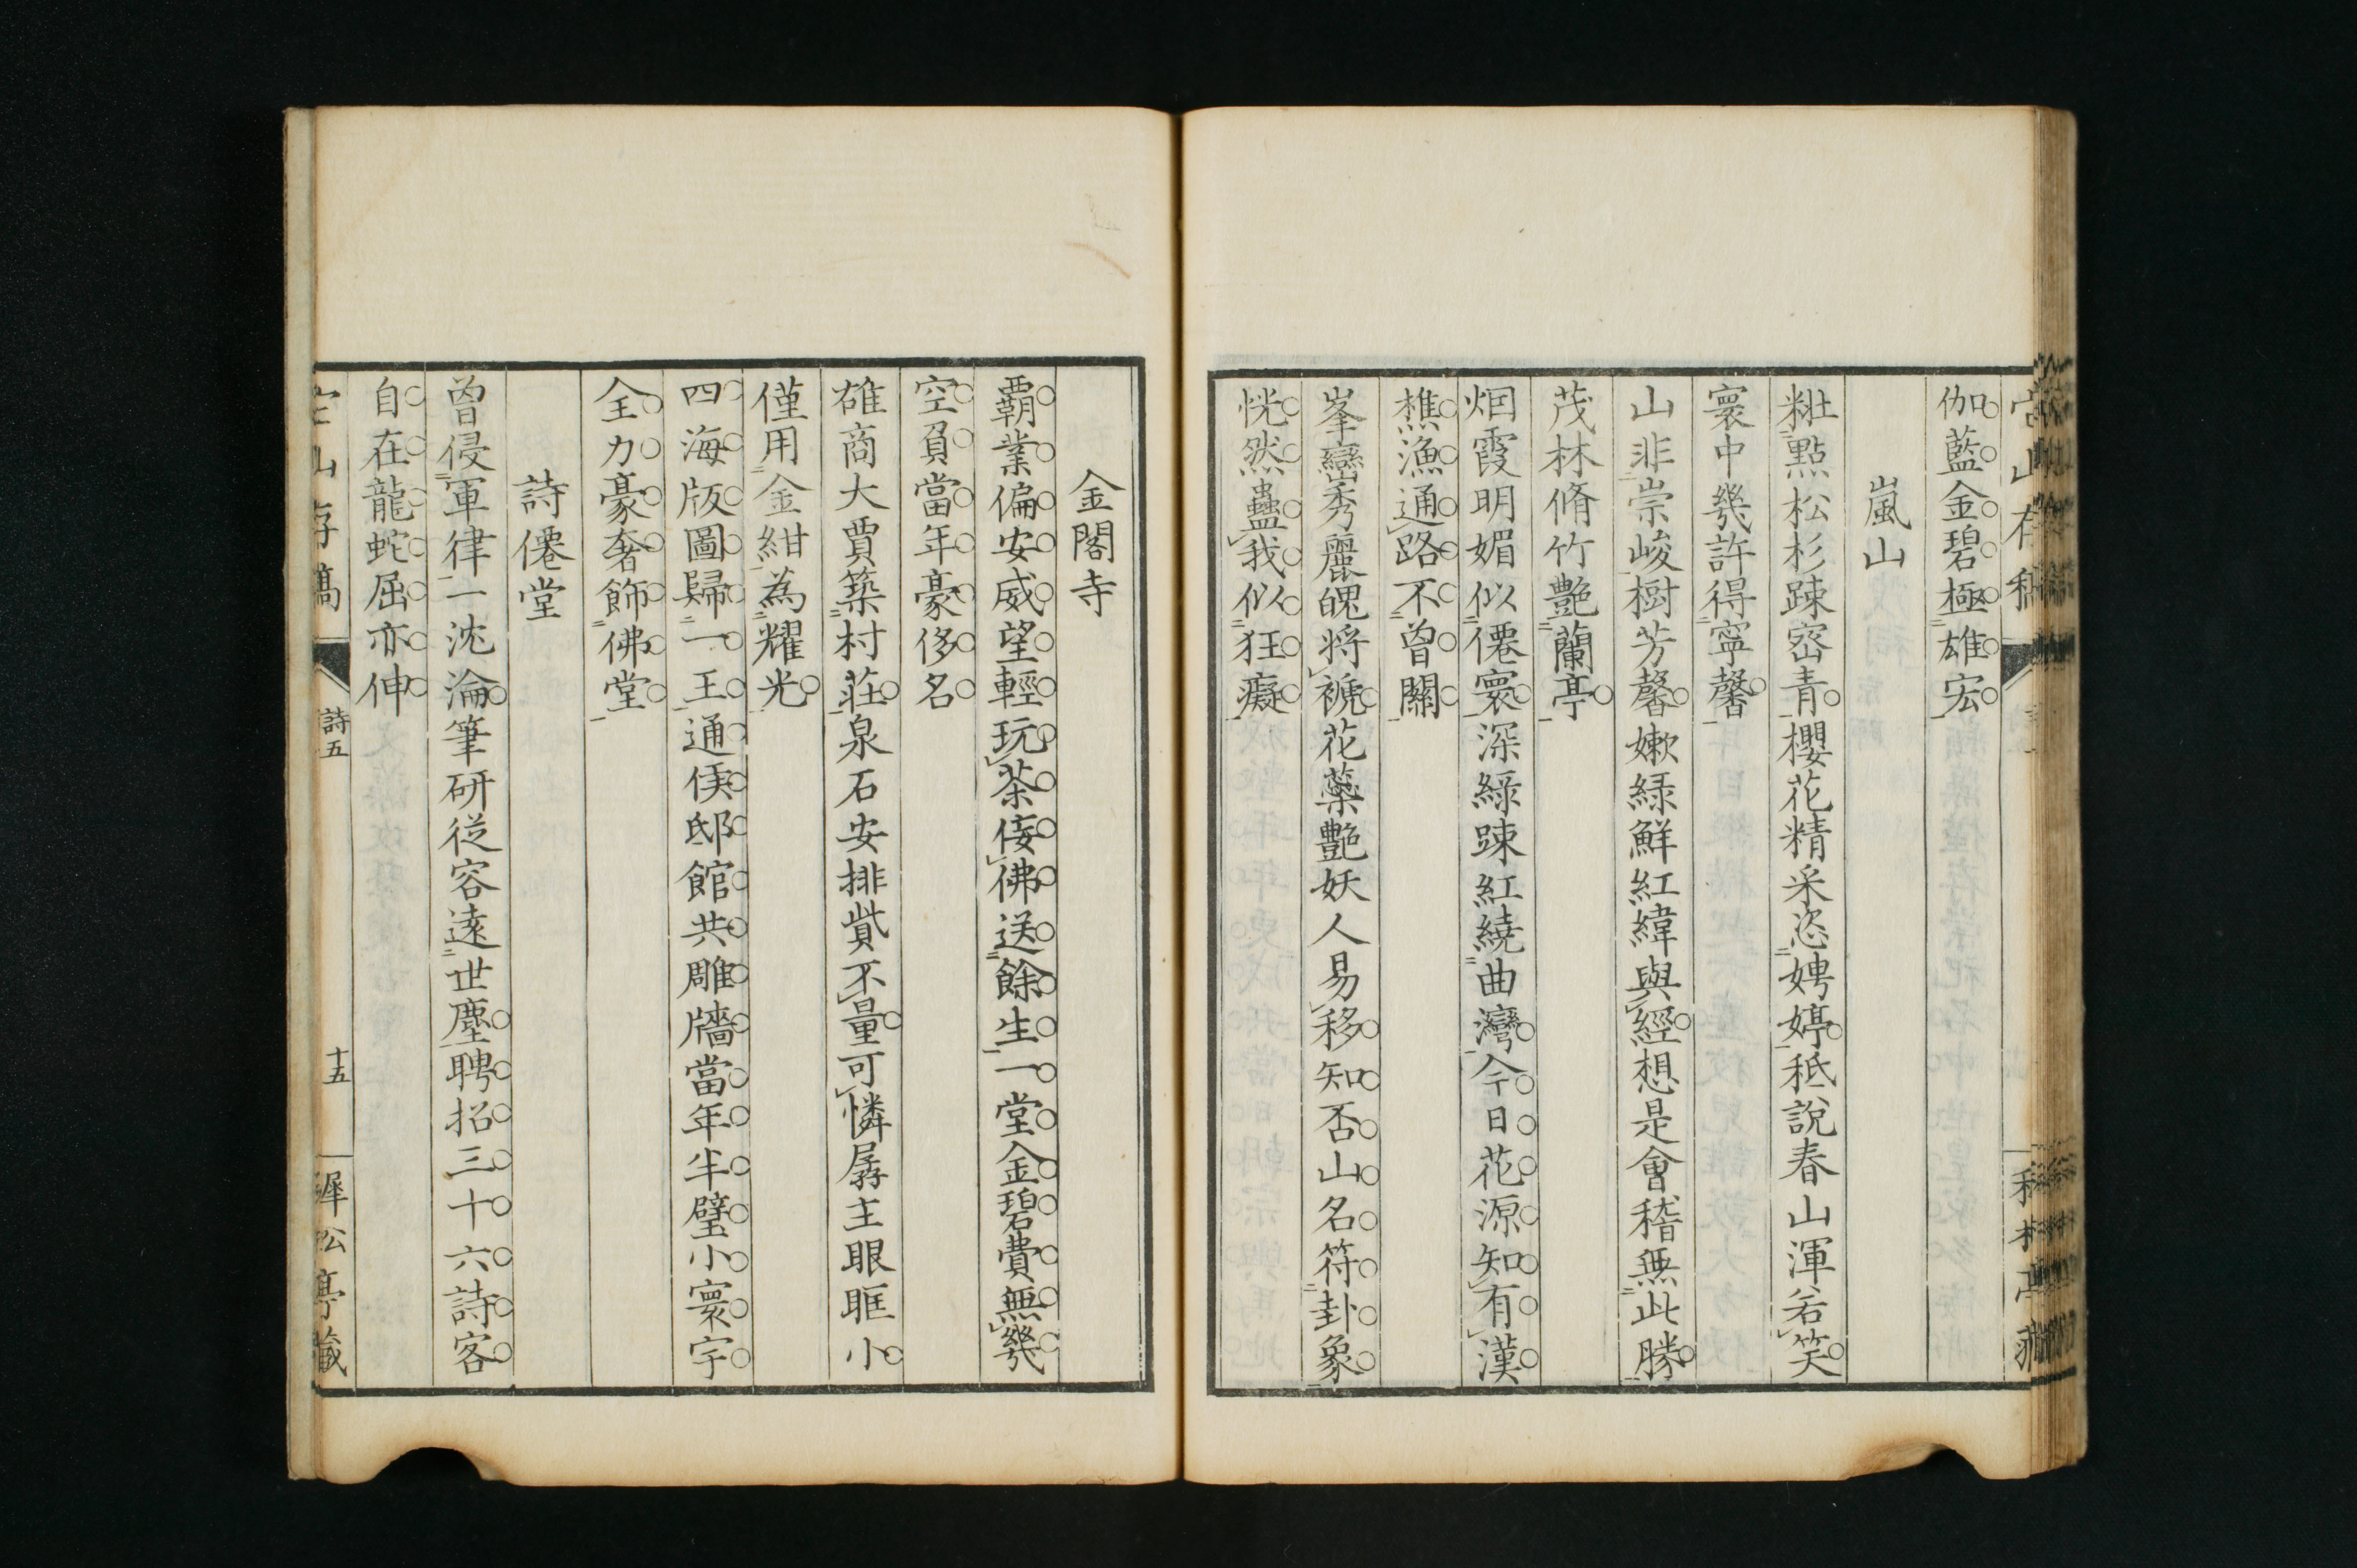 伽藍金碧極雄宏
嵐山
粧點松杉踈密青櫻花精采恣娉婷秪說春山渾若笑
寰中幾許得寧馨
山非崇峻樹芳馨嫩綠鮮紅緯與經想是會稽無此勝
茂林脩竹艷蘭亭
烟霞明媚似僊寰深綠踈紅繞曲灣今日花源知有漢
樵漁通路不曾關
峯巒秀麗醜將褫花藥艷妖人易移知否山名符卦象
恍然蠱我似狂癡
金閣寺
霸業偏安威望輕玩茶侫佛送餘生一堂金碧費無幾
空負當年豪侈名
雄商大賈築村莊泉石安排貲不量可憐孱主眼眶小
僅用金紺為耀光
四海版圖歸一王通侯邸館共雕牆當年半璧小寰宇
全力豪奢飾佛堂
詩僊堂
曾侵軍律一沈淪筆研從容遠世塵聘招三十六詩客
自在龍蛇屈亦伸
山存稿
詩五
十五
犀公亭藏